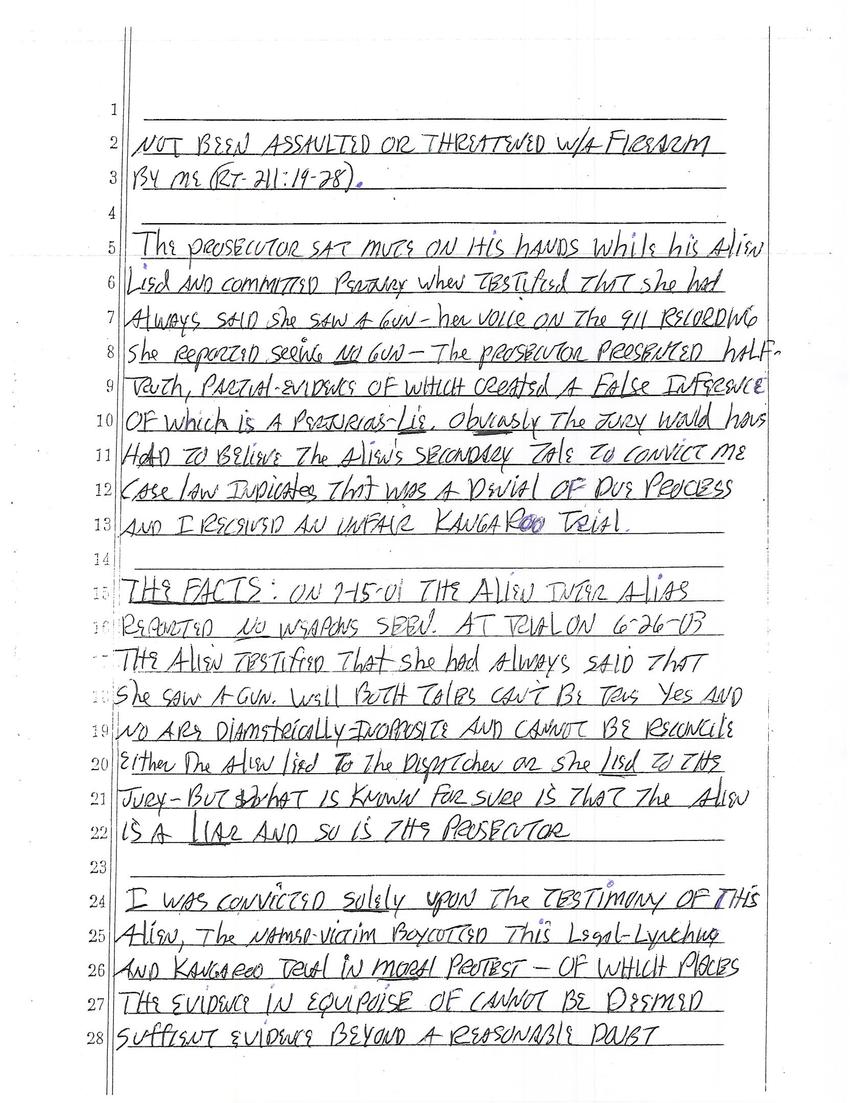 1
2 NOT BEEN ASSAULTED OR THREATENED W/A FIREARM
3 BY ME (RT-211:19-28).
4
5 The PROSECUTOR SAT MUTE ON HIS hANDS While his Alien
6 Lied AND COMMITTED PERJURY when TESTified THAT she had
7 Always SAID She SAW A GUN - her VOICE ON The 911 RECORDING
8 She REPORTED seeing NO GUN - The PROSECUTOR PRESENTED hALF-
9 TRUTH, PARTIAL-EVIDENCE OF WHICH CREATED A False INFERENCE
10 OF which is A PERJURIAS-Lie. Obviasly The JURY Would have
11 HAD TO BELIEVE The Alien's SECONDARY TALE TO CONVICT ME
12 CASE law INDICATES THAT WAS A DENIAL OF DUE PROCESS
13 AND I RECEIVED AN UNFAIR KANGAROO TRIAL.
14
15 THE FACTS: ON 7-15-01 THE Alien INTER AliAS
16 REPORTED NO WEAPONS SEEN. AT TRIAL ON 6-26-03
THE Alien TESTIFIED THAT She had Always SAID THAT
18 She SAW A GUN. Well BOTH TALES CAN'T BE TRUE Yes AND
19 NO ARE DiAMETRICAlly-INOPPOSITE AND CANNOT BE RECONCILE
20 Either The Alien lied TO The DISPATCher OR She lied TO THE
21 JURY - BUT WHAT IS KNOWN FOR SURE IS THAT The Alien
22 IS A LIAR AND SO IS THE PROSECUTOR
23
24 I WAS CONVICTED Solely UPON The TESTIMONY OF THIS
25 Alien, The NAMED-VICTIM BOYCOTTED This Legal-Lynching
26 AND KANGAROO TRIAL IN MORAL PROTEST - OF WHICH PLACES
27 THE EVIDENCE IN EQUIPOISE OF CANNOT BE DEEMED
28 SUFFIENT EVIDENCE BEYOND A REASONABLE DOUBT